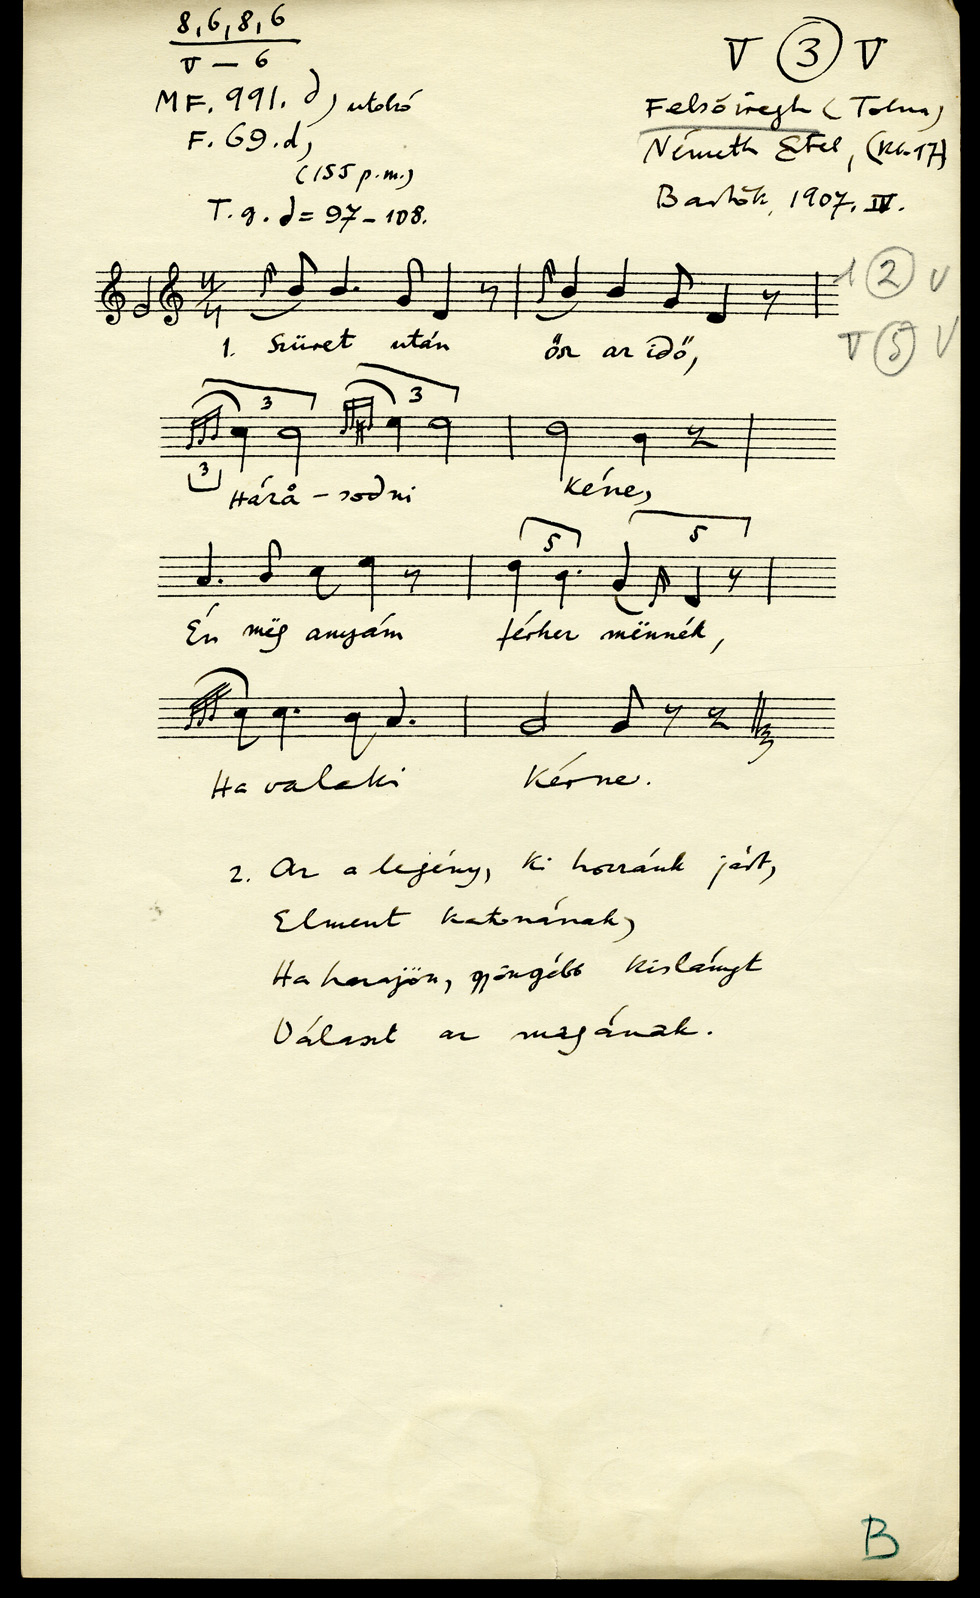 8,6,8,6
V — 6
MF. 991. d) utolsó
F. 69. d,
(155 p.m.)
T. g. = 97 – 108.
V 3 V
Felsőiregh (Tolna)
Németh Etel, (17)
Bartók, 1907. IV.
1 2 V
V 5 V
1. Szüret után ősz az idő,
3 3
3
Hárå – sodni Kéne,
5 5
Én mëg anyám férher mënnék,
Ha valaki Kérne.
2. Az a legény, Ki hozzánk járt,
Elment Katonának,
Ha hazajön, gyöngébb Kislányt
Választ az magának.
B